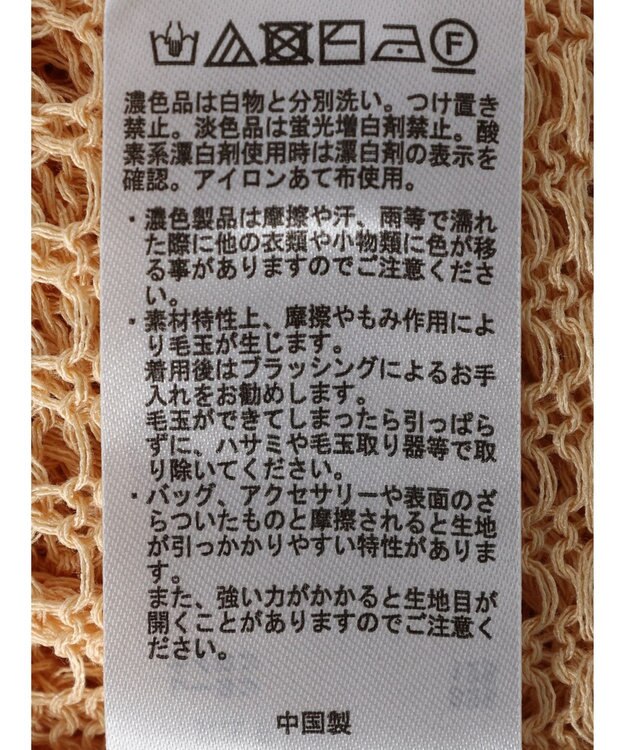 F
濃色品は白物と分別洗い。つけ置き
禁止。淡色品は蛍光増白剤禁止。酸
素系漂白剤使用時は漂白剤の表示を
確認。アイロンあて布使用。
・濃色製品は摩擦や汗、雨等で濡れ
た際に他の衣類や小物類に色が移
る事がありますのでご注意くださ
い。
・素材特性上、摩擦やもみ作用によ
り毛玉が生じます。
着用後はブラッシングによるお手
入れをお勧めします。
毛玉ができてしまったら引っぱら
ずに、ハサミや毛玉取り器等で取
り除いてください。
・バッグ、アクセサリーや表面のざ
らついたものと摩擦されると生地
が引っかかりやすい特性がありま
す。
また、強い力がかかると生地目が
開くことがありますのでご注意く
ださい。
中国製